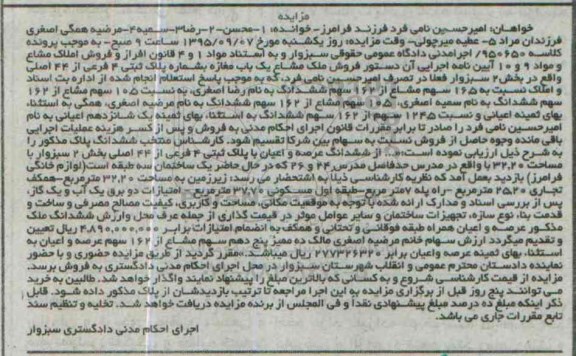 مزایده
خواهان: امیرحسین نامی فرد فرزند فرامرز - خوانده: ۱-محسن ۲-رضا ۳-سمیه ۴-مرضیه همگی اصغری
فرزندان مراد ۵- عطیه میرچولی- وقت مزایده: روز یکشنبه مورخ ۱۳۹۵/۰۹/۰۷ ساعت ۹ صبح- به موجب پرونده
کلاسه ۹۵۰۶۵۰ اجرامدنی دادگاه عمومی حقوقی سبزوار و به استناد مواد ۱ و ۴ قانون افراز و فروش املاک مشاع
و مواد ۹ و ۱۰ آیین نامه اجرایی آن دستور فروش ملک مشاع یک باب مغازه بشماره پلاک ثبتی ۲ فرعی از ۴۴ اصلی
واقع در بخش ۲ سبزوار فعلا در تصرف امیرحسین نامی فرد، که به موجب پاسخ استعلام انجام شده از اداره ثبت اسناد
و املاک نسبت به ۱۶۵ سهم مشاع از ۱۶۲ سهم ششدانگ به نام رضا اصغری، به نسبت ۱۰۵ سهم مشاع از ۱۶۲
سهم ششدانگ به نام سمیه اصغری، ۱۰۵ سهم مشاع از ۱۶۲ سهم ششدانگ به نام مرضیه اصغری، همگی به استثناء
بهای ثمینه اعیانی و نسبت ۱۲۴۵ سهم از ۱۶۲ سهم ششدانگ به استثناء، بهای ثمینه یک شانزدهم اعیانی به نام
امیرحسین نامی فرد را صادر تا برابر مقررات قانون اجرای احکام مدنی به فروش و پس از کسر هزینه عملیات اجرایی
باقی مانده وجوه حاصل از فروش نسبت به سهام بین شرکا تقسیم شود. کارشناس منتخب ششدانگ پلاک مذکور را
به شرح ذیل ارزیابی نموده است: از ششدانگ عرصه و اعیان با پلاک ثبتی ۲ فرعی از ۴۴ اصلی بخش ۲ سبزوار با
مساحت ۳۲.۲۰ با واقع در مدرس حدفاصل مدرس ۲۴ و ۲۶ که در حال حاضر یک ساختمان سه طبقه است (لوازم خانگی
فرامرز) بازدید بعمل آمد که نظریه کارشناسی ذیلا به استحضار می رسد: زیرزمین به مساحت ۳۲.۲۰ مترمربع-همکف
تجاری ۲۵.۲۰ مترمربع -راه پله ۷متر مربع-طبقه اول مسکونی ۳۷.۷۰ مترمربع - امتیازات دو برق یک آب و یک گاز،
پس از بررسی اسناد و مدارک ارائه شده با توجه به موقعیت مکانی، مساحت و کاربری، کیفیت مصالح مصرفی و ساخت و
قدمت بنا، نوع سازه، تجهیزات ساختمان و سایر عوامل موثر در قیمت گذاری از جمله عرف محل وارزش ششدانگ ملک
مذکور عرصه و اعیان همراه طبقه فوقانی و تحتانی و همکف به انضمام امتیازات برابر ۴.۸۹۰,۰۰۰,۰۰۰ ریال تعیین
و تقدیم میگردد ارزش سهام خانم مرضیه اصغری مالک ده ممیز پنج دهم سهم مشاع از ۱۶۲ سهم عرصه و اعیان به
استثناء بهای ثمینه عرصه واعیان برابر ۲۷۷۳۲۶۳۲۰ ریال میباشد.مقرر گردید از طریق مزایده حضوری و با حضور
نماینده دادستان محترم عمومی و انقلاب شهرستان سبزوار در محل اجرای احکام مدنی دادگستری به فروش برسد.
مزایده از قیمت کارشناسی شروع و به کسانی که بالاترین مبلغ را پیشنهاد نمایند واگذار خواهد شد. طالبین به خرید
می توانند پنج روز قبل از برگزاری مزایده به این اجرا مراجعه تا ترتیب بازدیدشان از پلاک مذکور داده شود. قابل
ذکر اینکه مبلغ ده درصد مبلغ پیشنهادی نقدا و فی المجلس از برنده مزایده دریافت خواهد شد. تخلیه و تنظیم سند
تابع مقررات جاری می باشد.
اجرای احکام مدنی دادگستری سبزوار